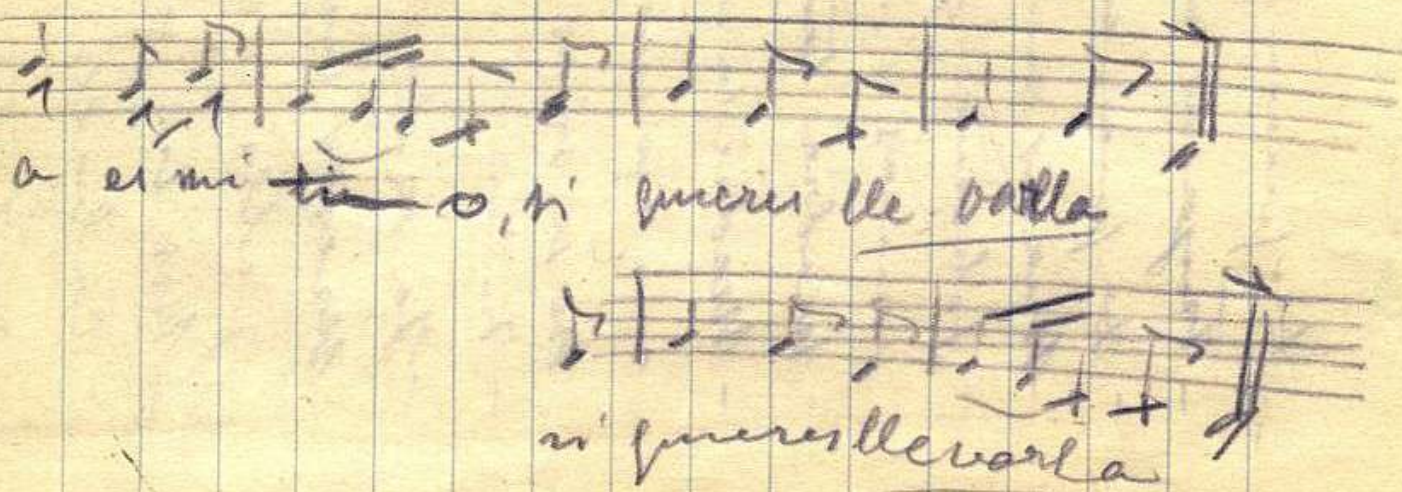 a es mi tio, si quieres llevarla
si quieres llevarla